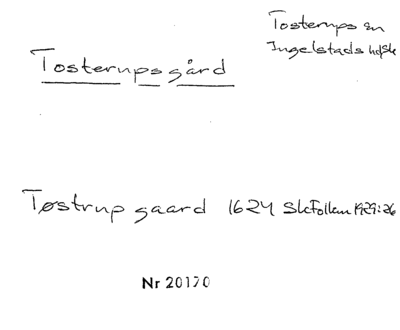 Tosterups sn
Ingelstads hd Sk
Tosterupsgård
Tøstrup gaard 1624 SkFollem 1929:26
Nr 20170